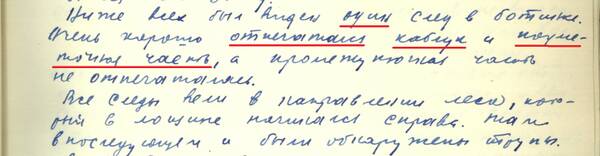 Ниже всех был виден один след в ботинке.
Очень хорошо отпечатался каблук и подме-
точная часть, а промежуточная часть
не отпечаталась.
Все следы вели в направлении леса, кото-
рый в лощине начинался справа. Там
впоследующем и были обнаружены трупы.